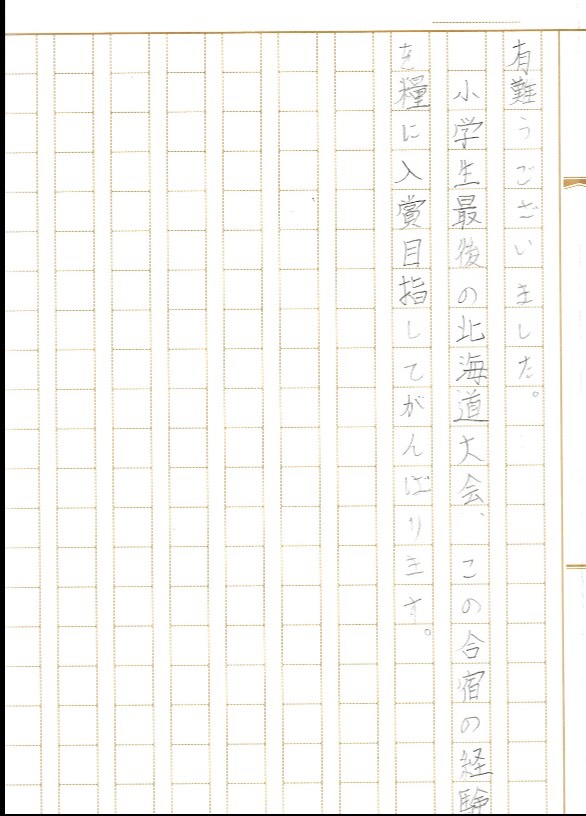 有難うございました。
小学生最後の北海道大会、この合宿の経験
を糧に入賞目指してがんばります。